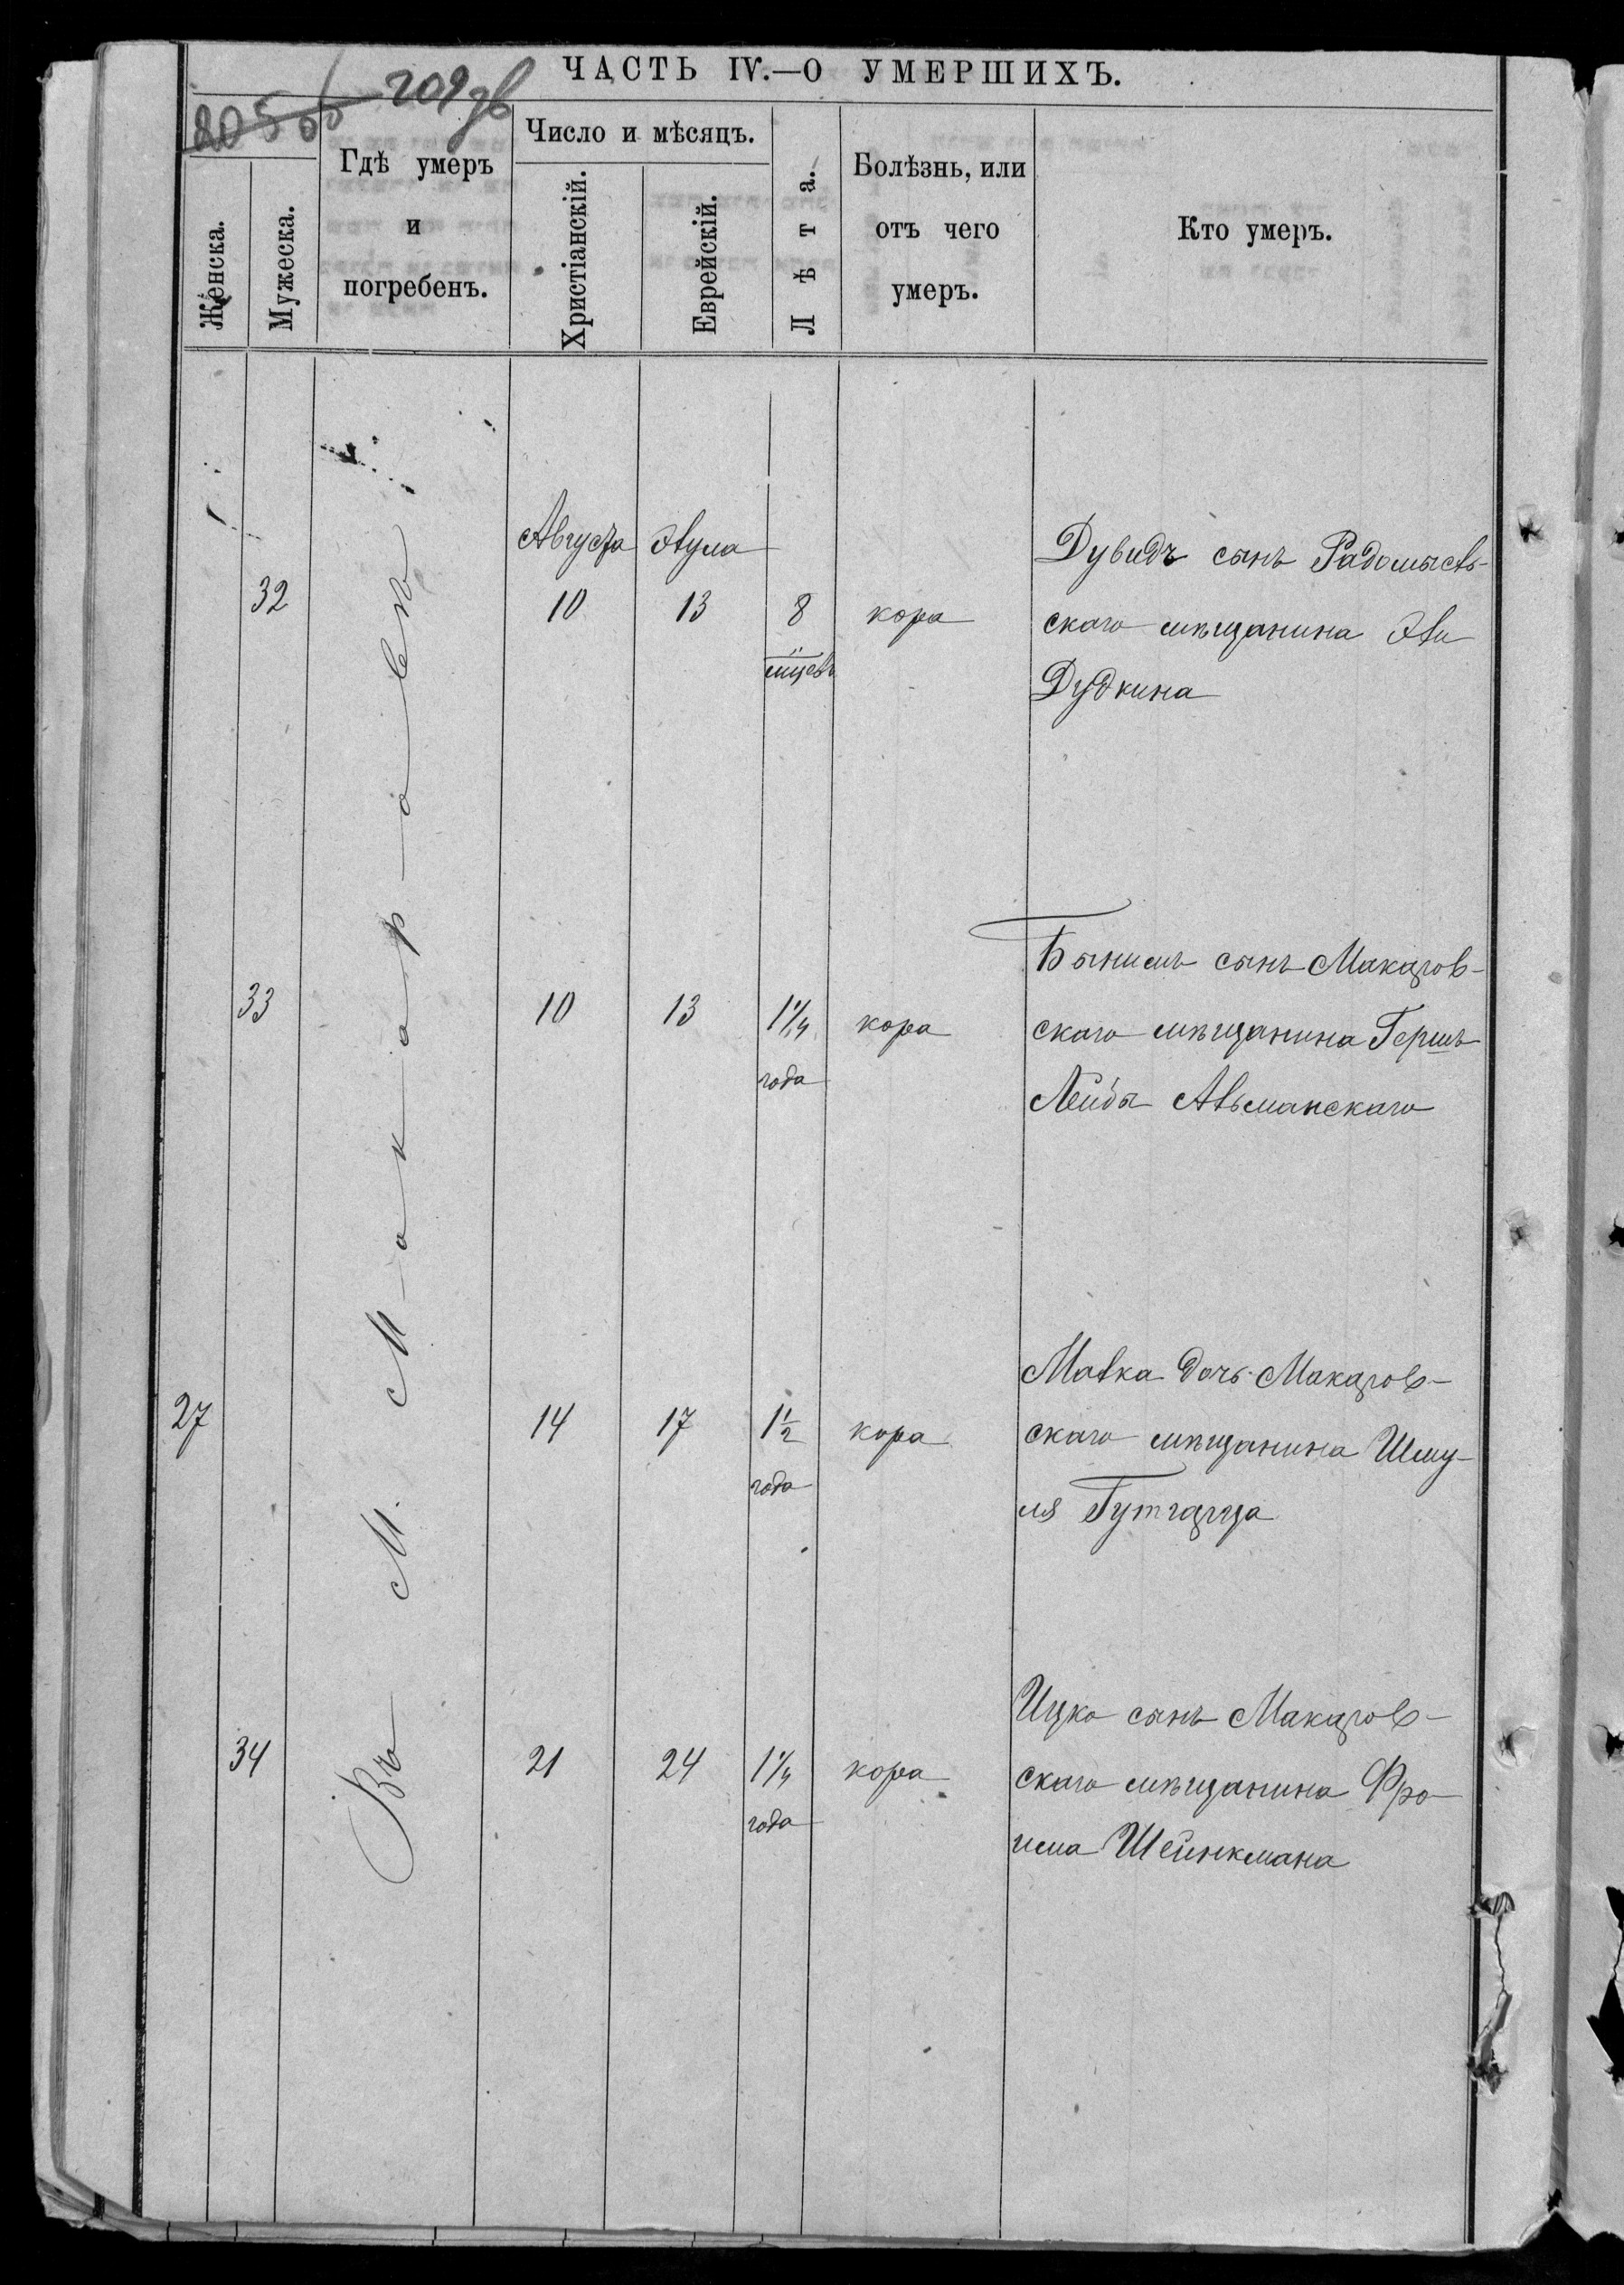 ЧАСТЬ IV.—О УМЕРШИХЪ.
209 об
Женска.
Мужеска.
Гдѣ умеръ
и
погребенъ.
Число и мѣсяцъ.
Христіанскій.
Еврейскій.
Лѣта.
Болѣзнь, или
отъ чего
умеръ.
Кто умеръ.
Въ М. Макаровѣ
Августа Элула
32 10 13 8 кора
мѣсцевъ
Дувидъ сынъ Радомысль-
скаго мѣщанина Эли
Дудкина
33 10 13 1 1/4 кора
года
Бынимъ сынъ Макаров-
скаго мѣщанина Герша
Лейба Альманскаго
27 14 17 1 1/2 кора
года
Малка дочь Макаров-
скаго мѣщанина Шму-
ля Гутгарца
34 21 24 1 1/4 кора
года
Ицко сынъ Макаров-
скаго мѣщанина Фро-
има Шейнкмана